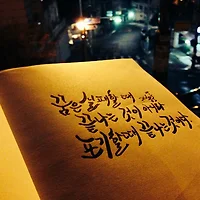 삶은 실패할 때
끝나는 것이 아니라
포기할때 끝나는것이다